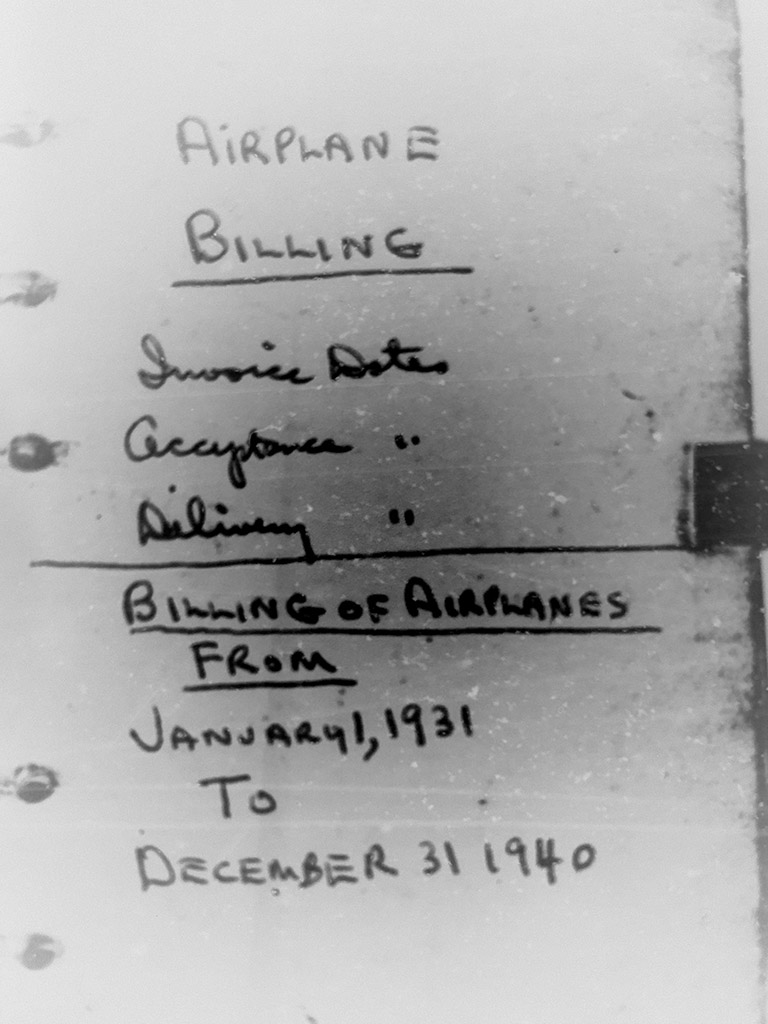 AIRPLANE
BILLING
Invoice Dates
Acceptance "
Delivery "
BILLING OF AIRPLANES
FROM
JANUARY 1, 1931
TO
DECEMBER 31 1940